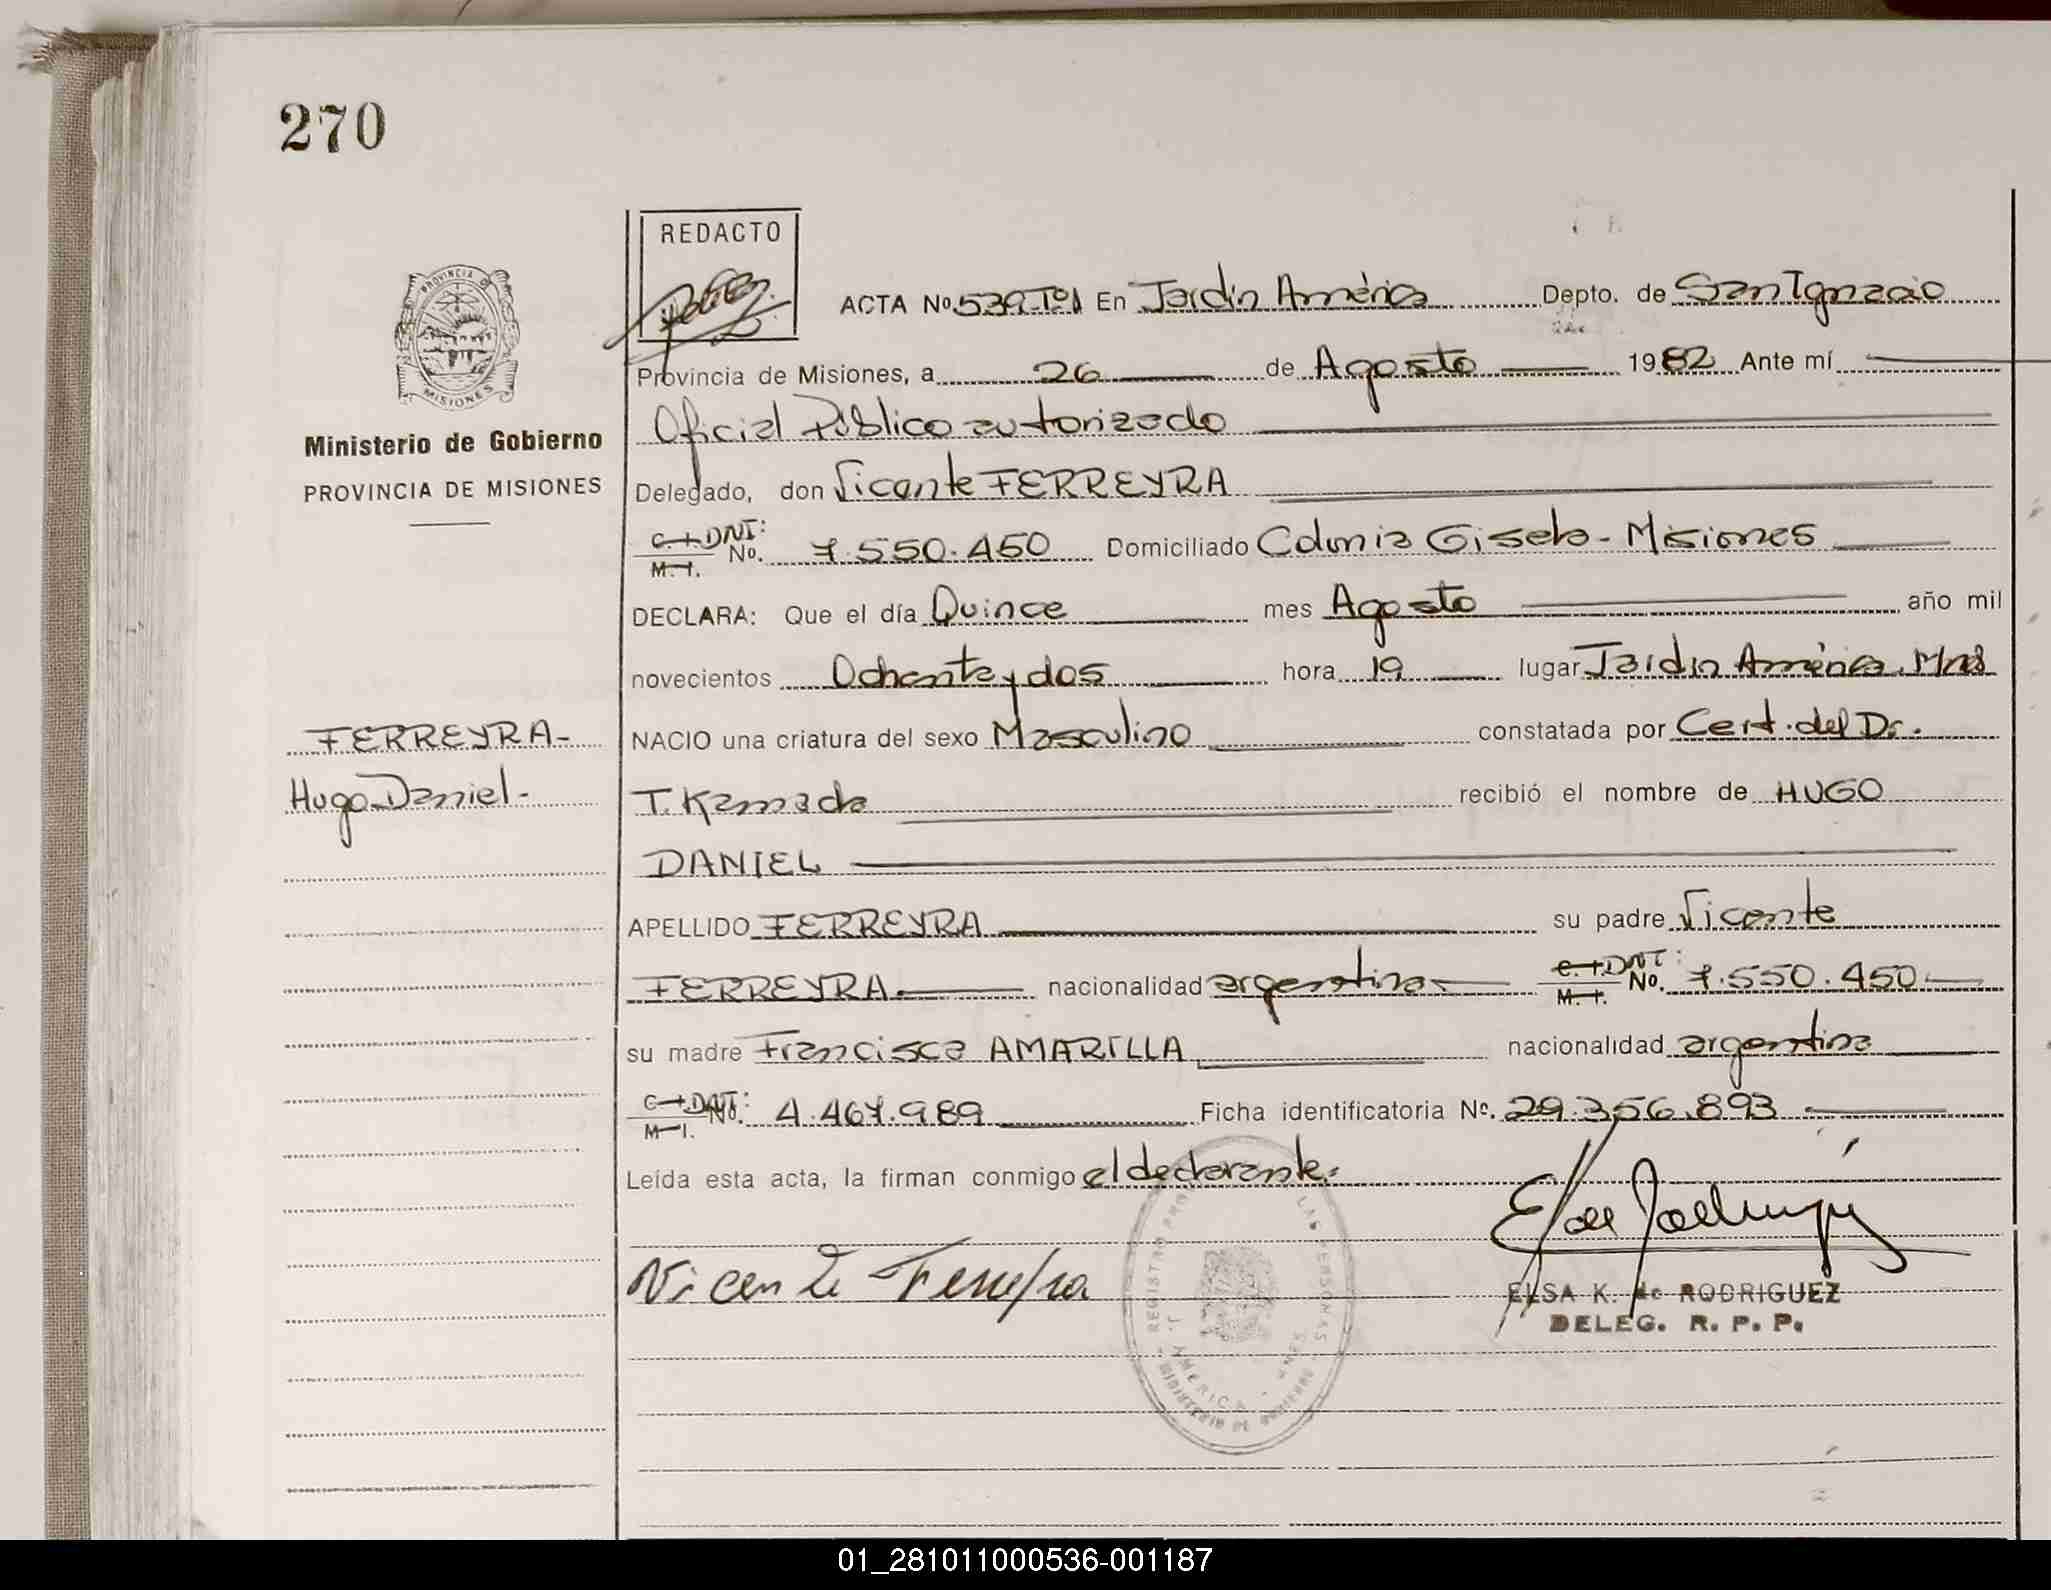 270
REDACTO
PROVINCIA DE
MISIONES
Ministerio de Gobierno
PROVINCIA DE MISIONES
ACTA No. 539-TºI En Jardín América Depto. de San Ignacio
Provincia de Misiones, a 26 de Agosto 1982 Ante mí
Oficial Público autorizado
Delegado, don Vicente FERREYRA
C. I. DNI: M. I. No. 7.550.450 Domiciliado Colonia Gisela - Misiones
DECLARA: Que el día Quince mes Agosto año mil
novecientos Ochenta y dos hora 19 lugar Jardín América. Mnes
FERREYRA-
Hugo Daniel-
NACIO una criatura del sexo Masculino constatada por Cert. del Dr.
T. Kamada recibió el nombre de HUGO
DANIEL
APELLIDO FERREYRA su padre Vicente
FERREYRA. nacionalidad argentina C. I. DNI: M. I. No. 7.550.450
su madre Francisca AMARILLA nacionalidad argentina
C. I. DNI: M. I. No. 4.467.989 Ficha identificatoria Nº. 29.356.893
Leída esta acta, la firman conmigo el declarante.
Vicente Ferreyra
ELSA K. de RODRIGUEZ
DELEG. R. P. P.
REGISTRO PROV. LAS PERSONAS
J. AMERICA - MISIONES
MINISTERIO DE GOBIERNO
01_281011000536-001187